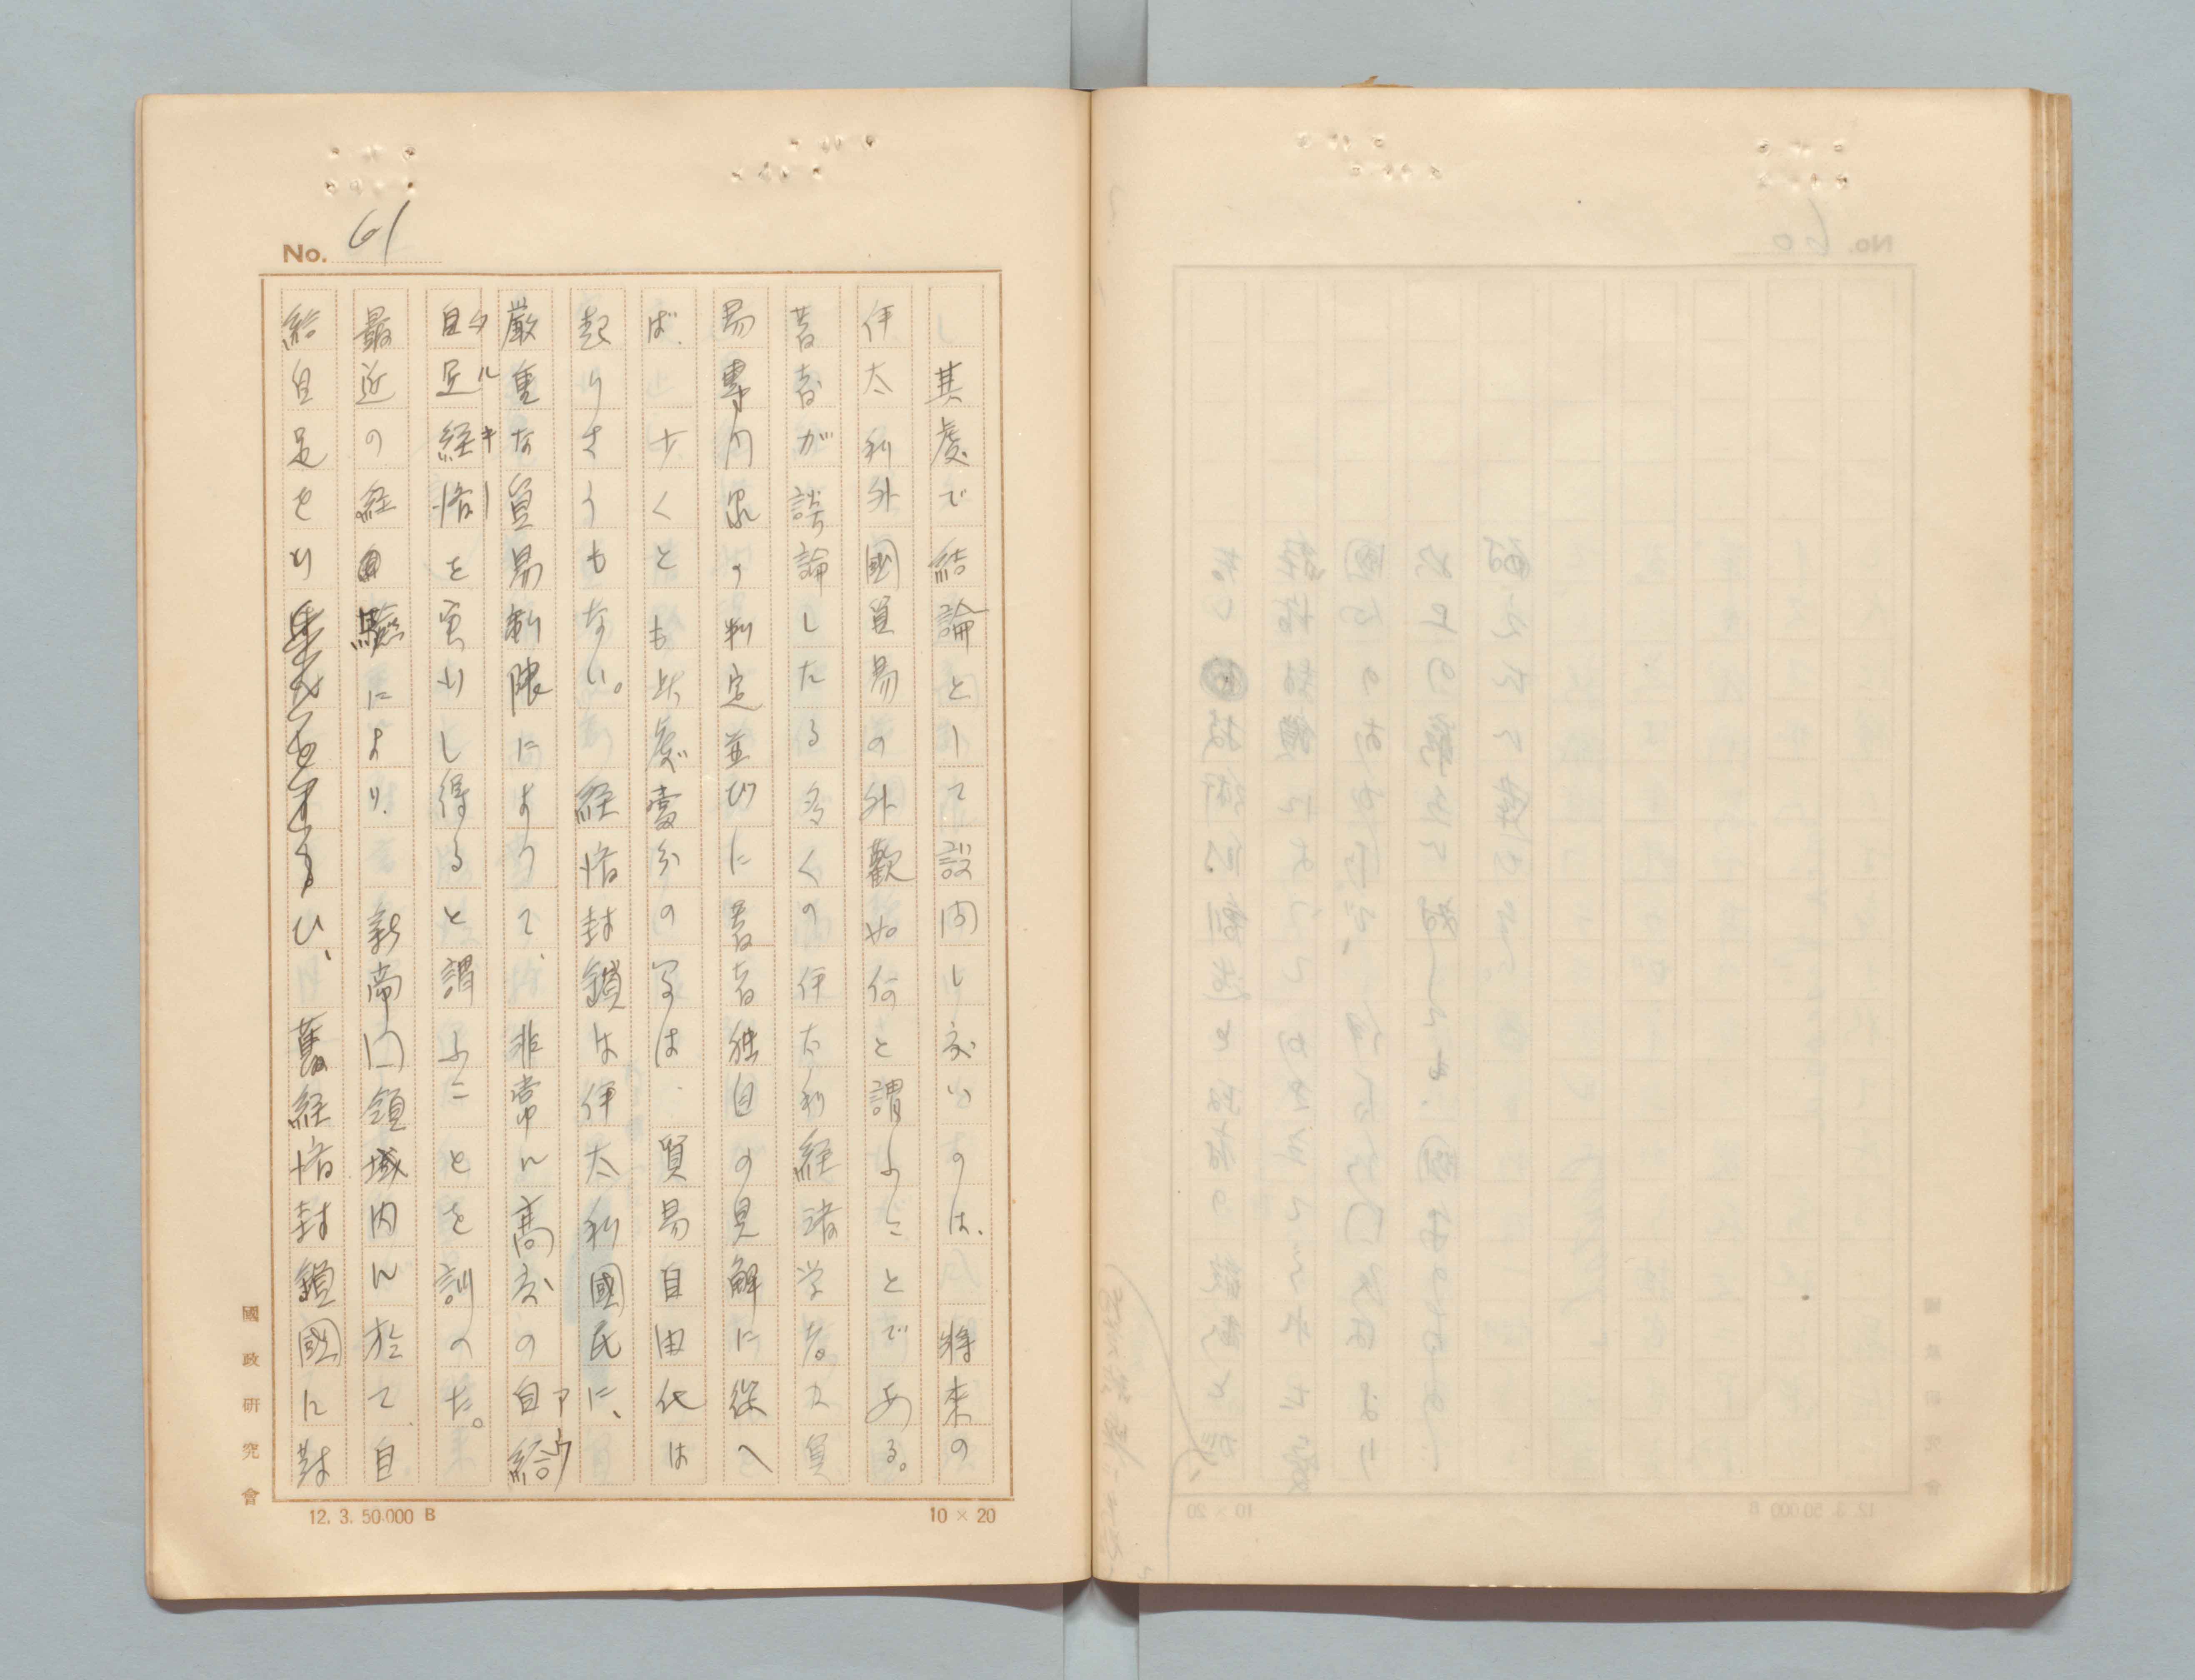 No. 61
其處で結論として設問し度いのは、將来の
伊太利外國貿易の外觀如何と謂ふことである。
著者が談論したる多くの伊太利経済学者及貿
易專門家の判定並びに著者独自の見解に從へ
ば、少くとも此處當分の間は、貿易自由化は
起りさうもない。経済封鎖は伊太利國民に、
厳重な貿易制限によって、非常に高度の自給
自足経済を実行し得ると謂ふことを訓へた。
アウタルキー
最近の経験により、新帝国領域内に於て、自
給自足を とひ、舊経済封鎖國に対
國政研究會
12. 3. 50.000 B
10 × 20